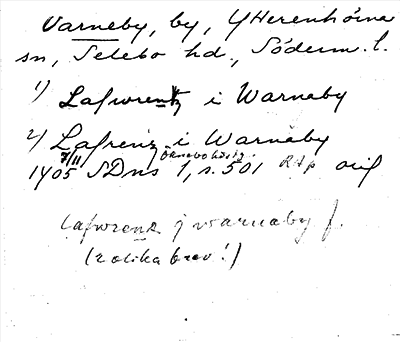 Varneby, by, Y Herenhörna
sn, Selebo hd., Söderm. l.
1) Lafwrentz i Warneby
2) Lafrenz i Warneby
7/11 Öknebo härad
1405 SDns 1, s. 501 RAp orig
Lafwrenz j warnaby f.
(2 olika brev!)